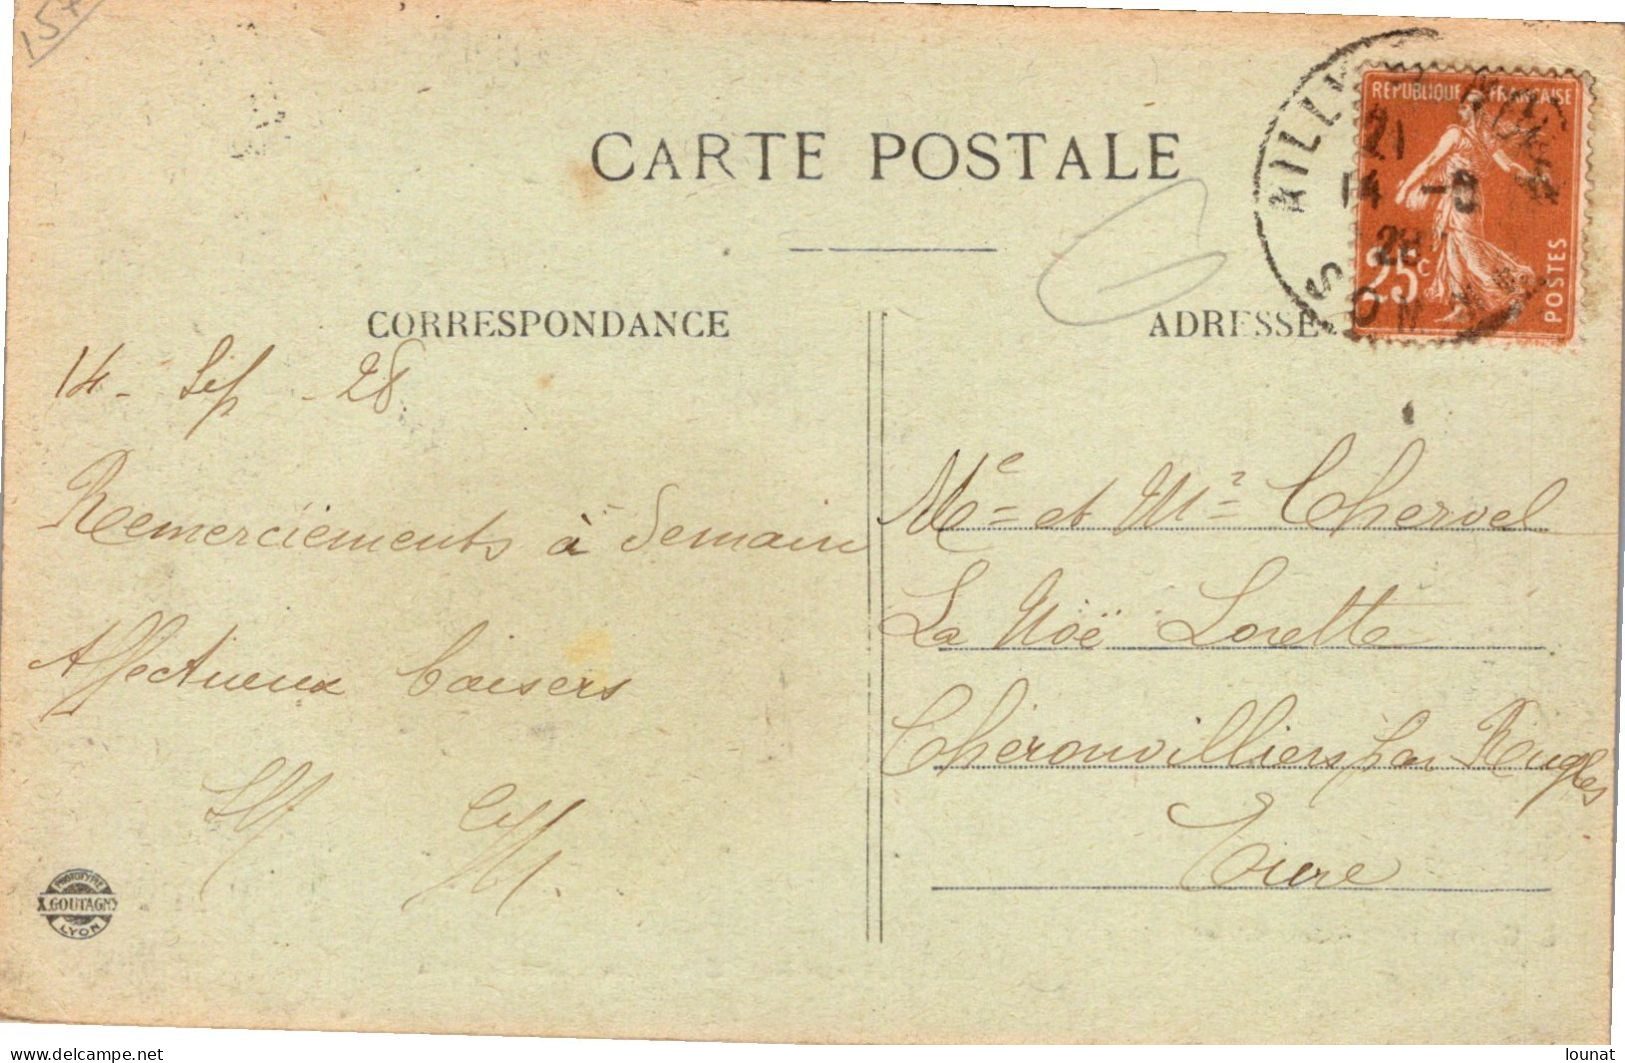 15+
CARTE POSTALE
RÉPUBLIQUE FRANÇAISE
25c
POSTES
21
14 -9
28
SOMME
CORRESPONDANCE
14 - Sep - 28
Remerciements à demain
Affectueux baisers
ADRESSE
Me et Mr Chervel
La Noë Lorette
Cheronvilliers par Rugles
Eure
PHOTOTYPIE
A. GOUTAGNY
LYON
www.delcampe.net
lounat